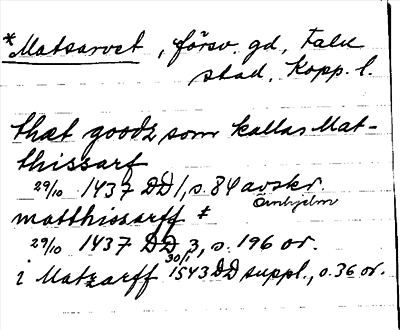 *Matsarvet, försv. gd, Falu
stad, Kopp. l.
thæt goodz som kallas Mat-
thissarf
29/10 1437 DD 1, s. 84 avskr.
Örnhjelm
matthissarff ‡
29/10 1437 DD 3, s. 196 or.
i Matzarff 30/1 1543 DD suppl., s. 36 or.